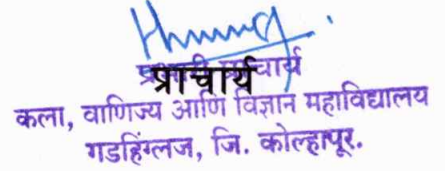 प्रभारी प्राचार्य
प्राचार्य
कला, वाणिज्य आणि विज्ञान महाविद्यालय
गडहिंग्लज, जि. कोल्हापूर.